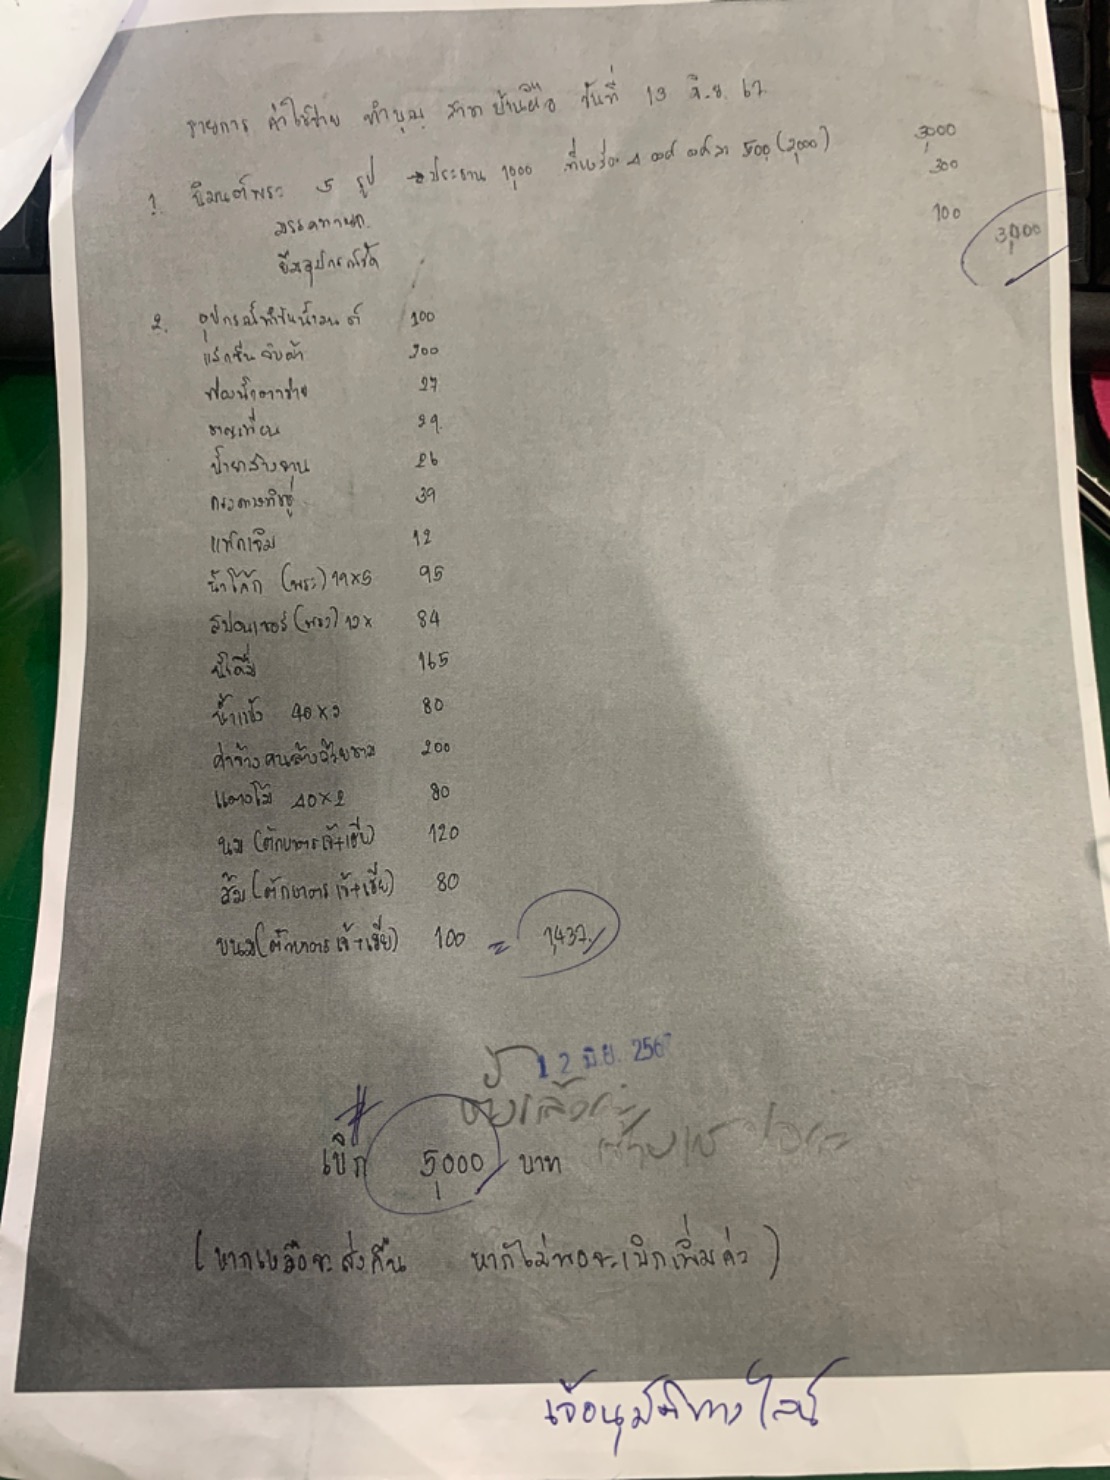 รายการ ค่าใช้จ่าย ทำบุญ สาขาบ้านผือ วันที่ 13 มิ.ย. 67
1. นิมนต์พระ 5 รูป → ประธาน 1,000 ที่เหลือ 4 องค์ องค์ละ 500 (2,000) 3,000
มรรคทายก 300
ยืมอุปกรณ์วัด 100
3,400
2. อุปกรณ์ทำขันน้ำมนต์ 100
แลกซีน จับผ้า 200
ฟองน้ำตาข่าย 27
29
น้ำยาล้างจาน 26
กระดาษทิชชู่ 39
12
น้ำโค้ก (พระ) 19x5 95
สปอนเซอร์ (พระ) 12x 84
น้ำดื่ม 165
น้ำแข็ง 40x2 80
ค่าจ้างคนล้างถ้วยชาม 200
แตงโม 40x2 80
นม (ตักบาตร เจ้+เฮีย) 120
ส้ม (ตักบาตร เจ้+เฮีย) 80
ขนม (ตักบาตร เจ้+เฮีย) 100 = 1,437
12 มิ.ย. 2567
# เบิก 5,000 บาท
(หากเหลือจะส่งคืน หากไม่พอจะเบิกเพิ่มค่ะ)
เจ้อนุมัติทางไลน์